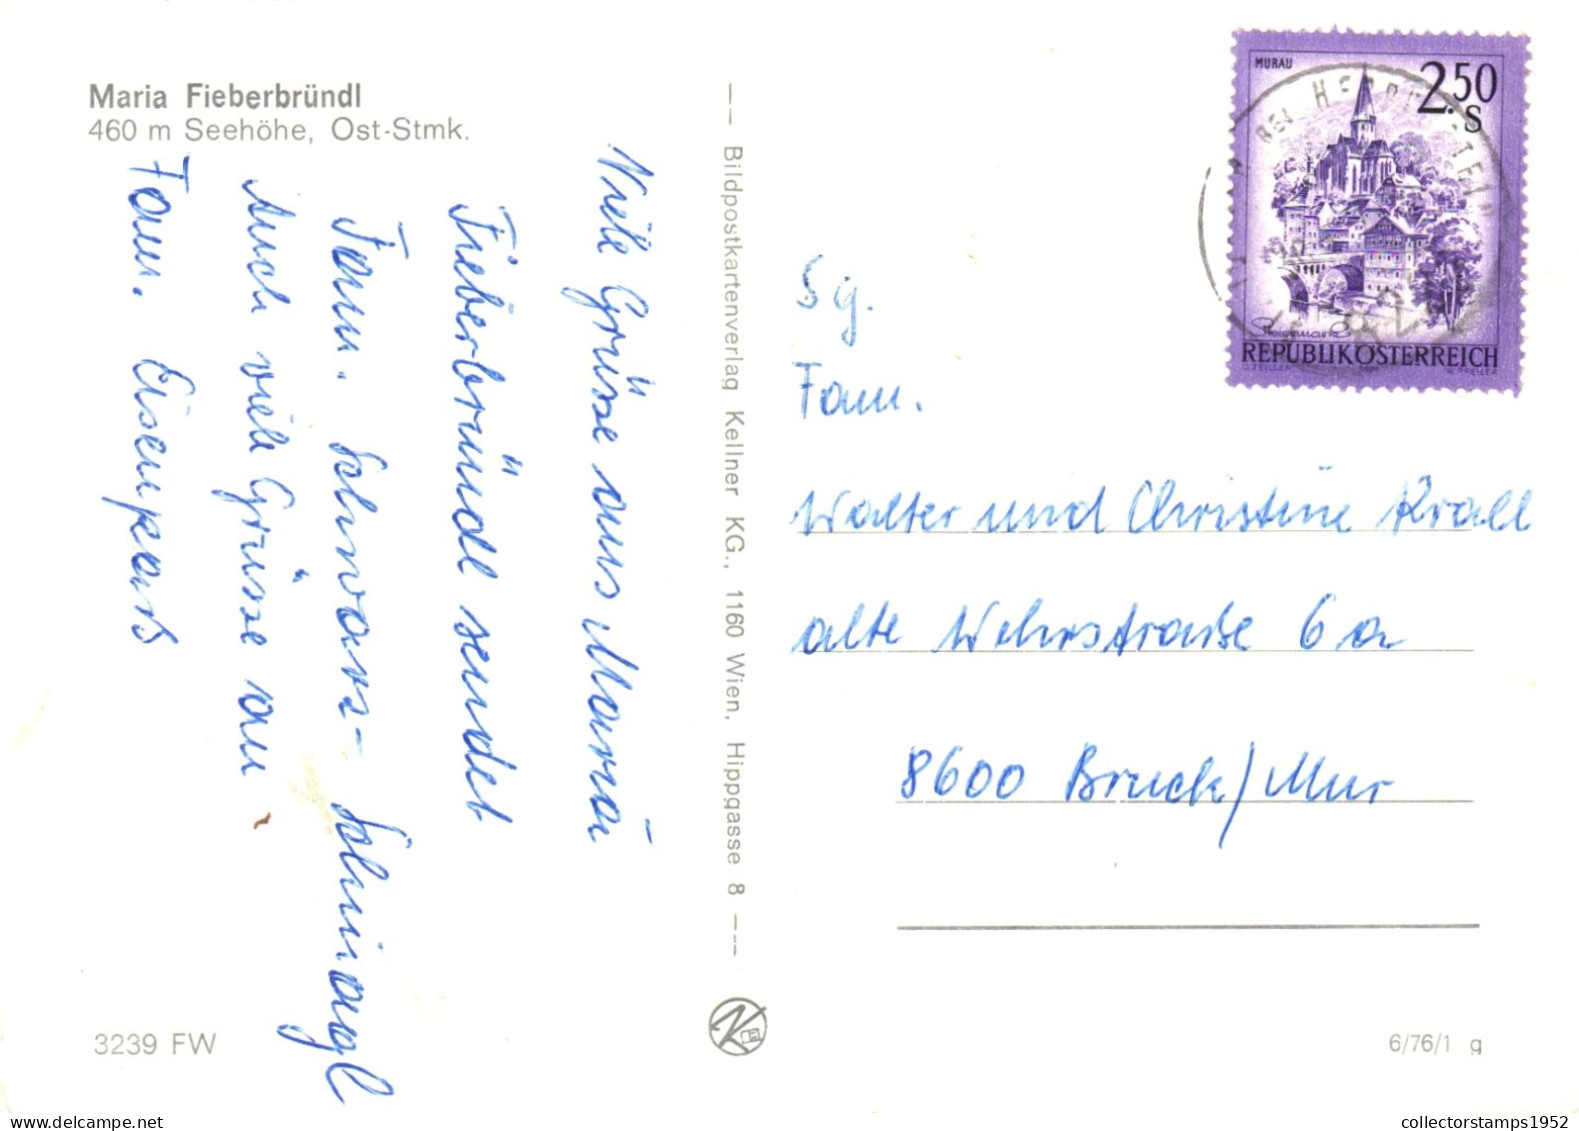 Maria Fieberbründl
460 m Seehöhe, Ost-Stmk.
Viele Grüsse aus Maria
Fieberbründl sendet
Fam. Schwarz- Schinagl
Auch viele Grüsse an
Fam. Eisenpass
-- Bildpostkartenverlag Kellner KG., 1160 Wien, Hippgasse 8 ---
MURAU
2.50
S
Steiermark
REPUBLIK ÖSTERREICH
BEI HERB
Sig.
Fam.
Walter und Christine Krall
alte Wehrstraße 6a
8600 Bruck/Mur
3239 FW
6/76/1 g
collectorstamps1952